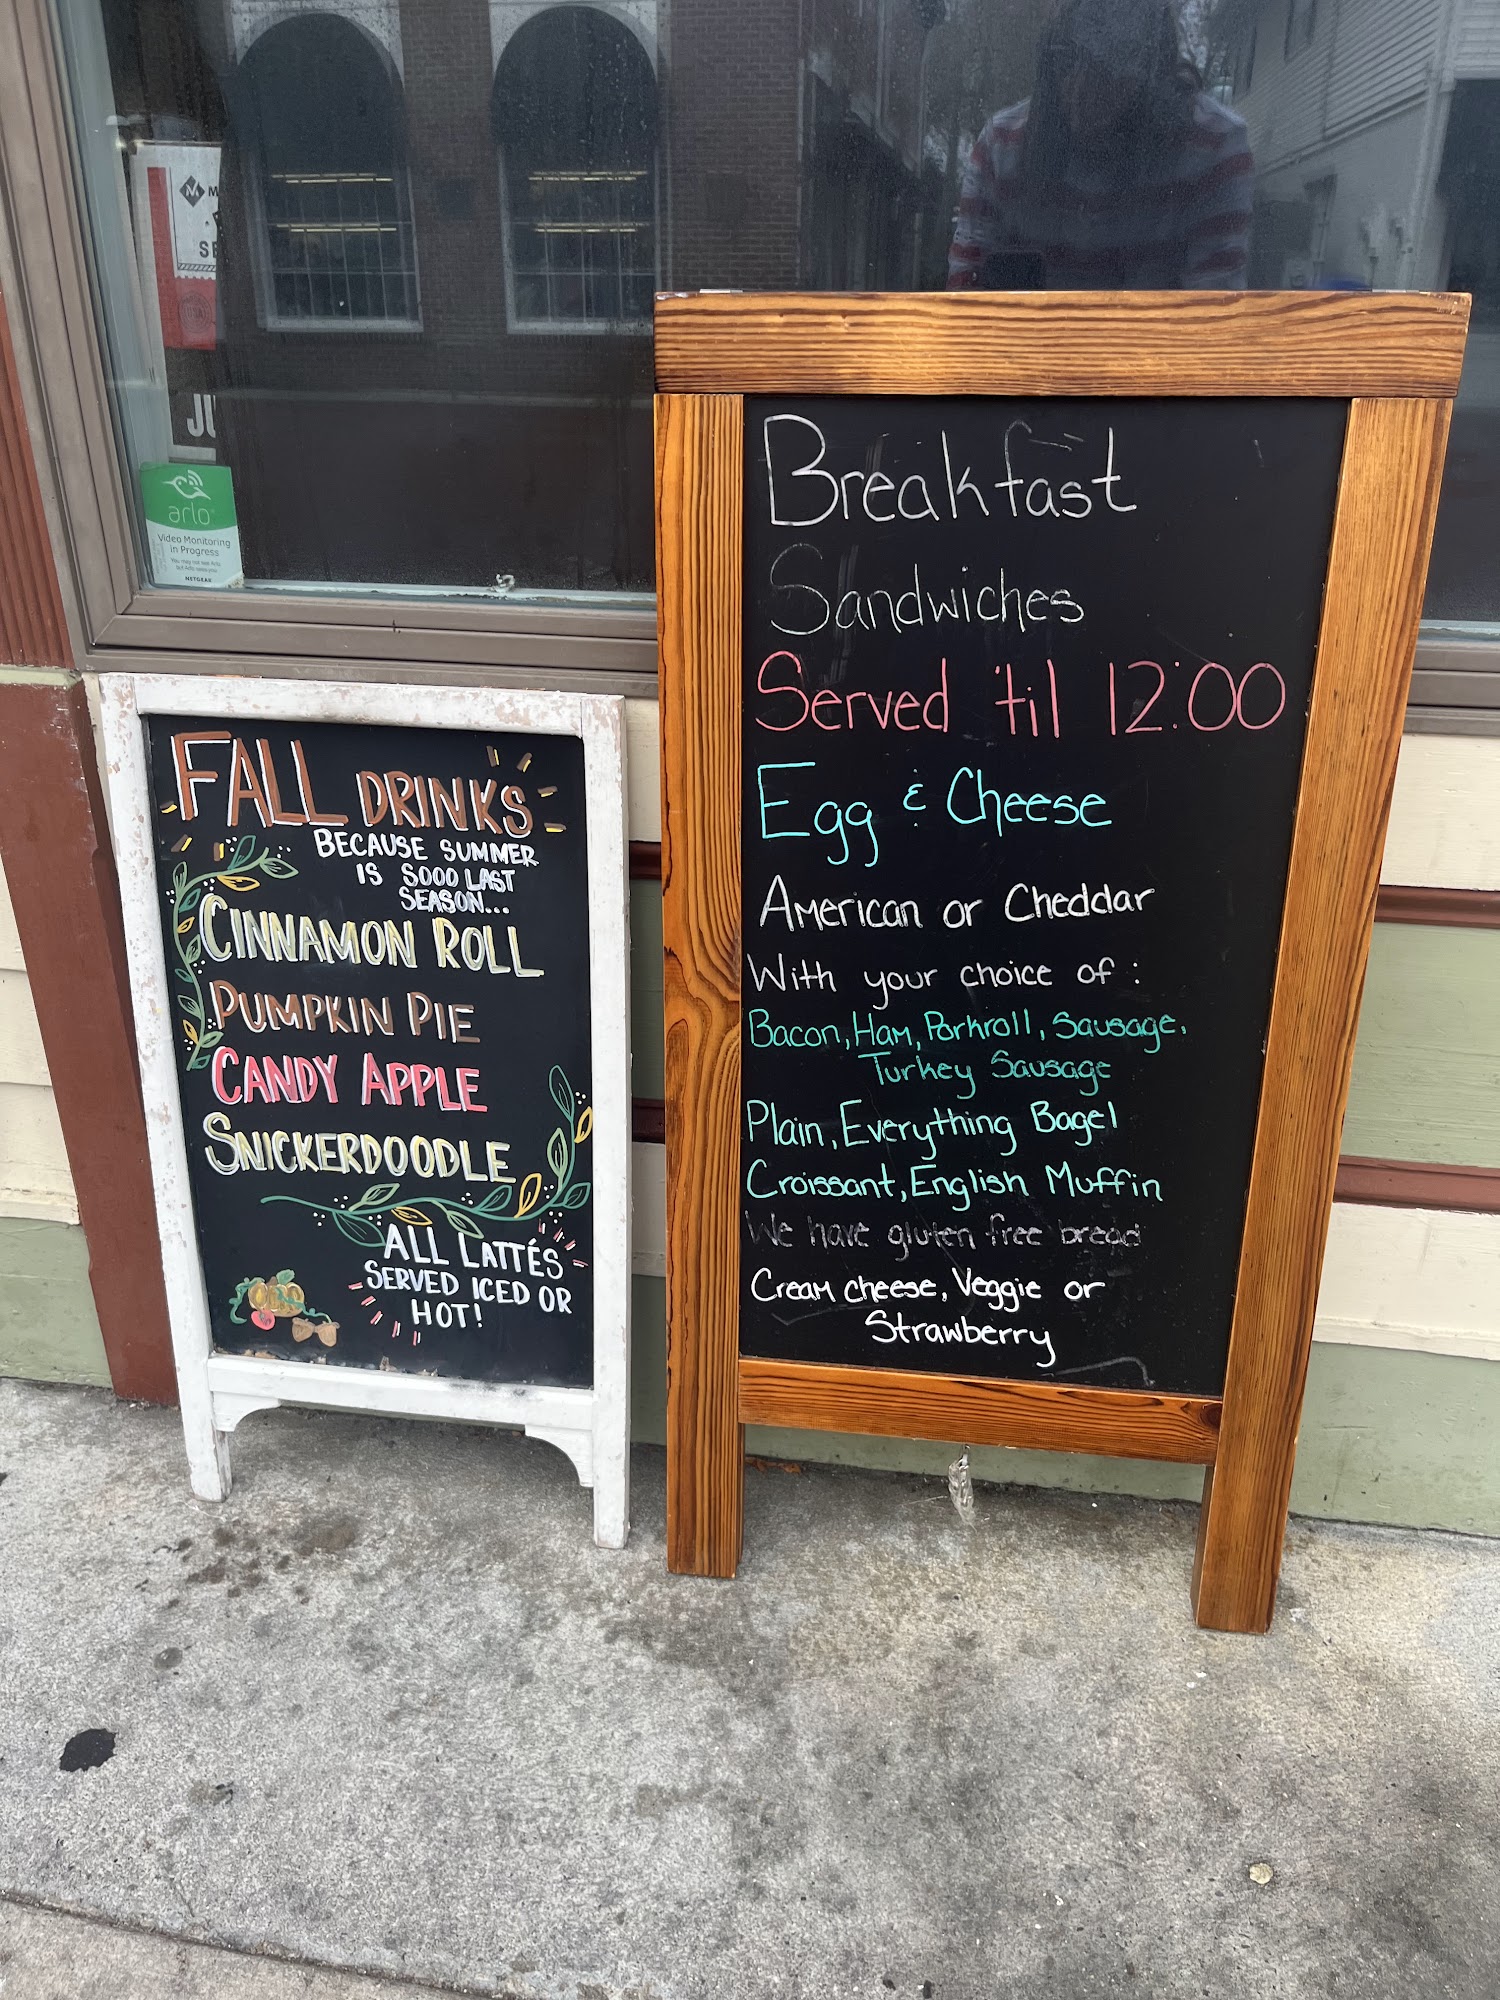 arlo
Video Monitoring
in Progress
NETGEAR
FALL DRINKS
BECAUSE SUMMER
IS SOOO LAST
SEASON...
CINNAMON ROLL
PUMPKIN PIE
CANDY APPLE
SNICKERDOODLE
ALL LATTÉS
SERVED ICED OR
HOT!
Breakfast
Sandwiches
Served 'til 12:00
Egg & Cheese
American or Cheddar
With your choice of:
Bacon, Ham, Porkroll, Sausage,
Turkey Sausage
Plain, Everything Bagel
Croissant, English Muffin
We have gluten free bread
Cream cheese, Veggie or
Strawberry